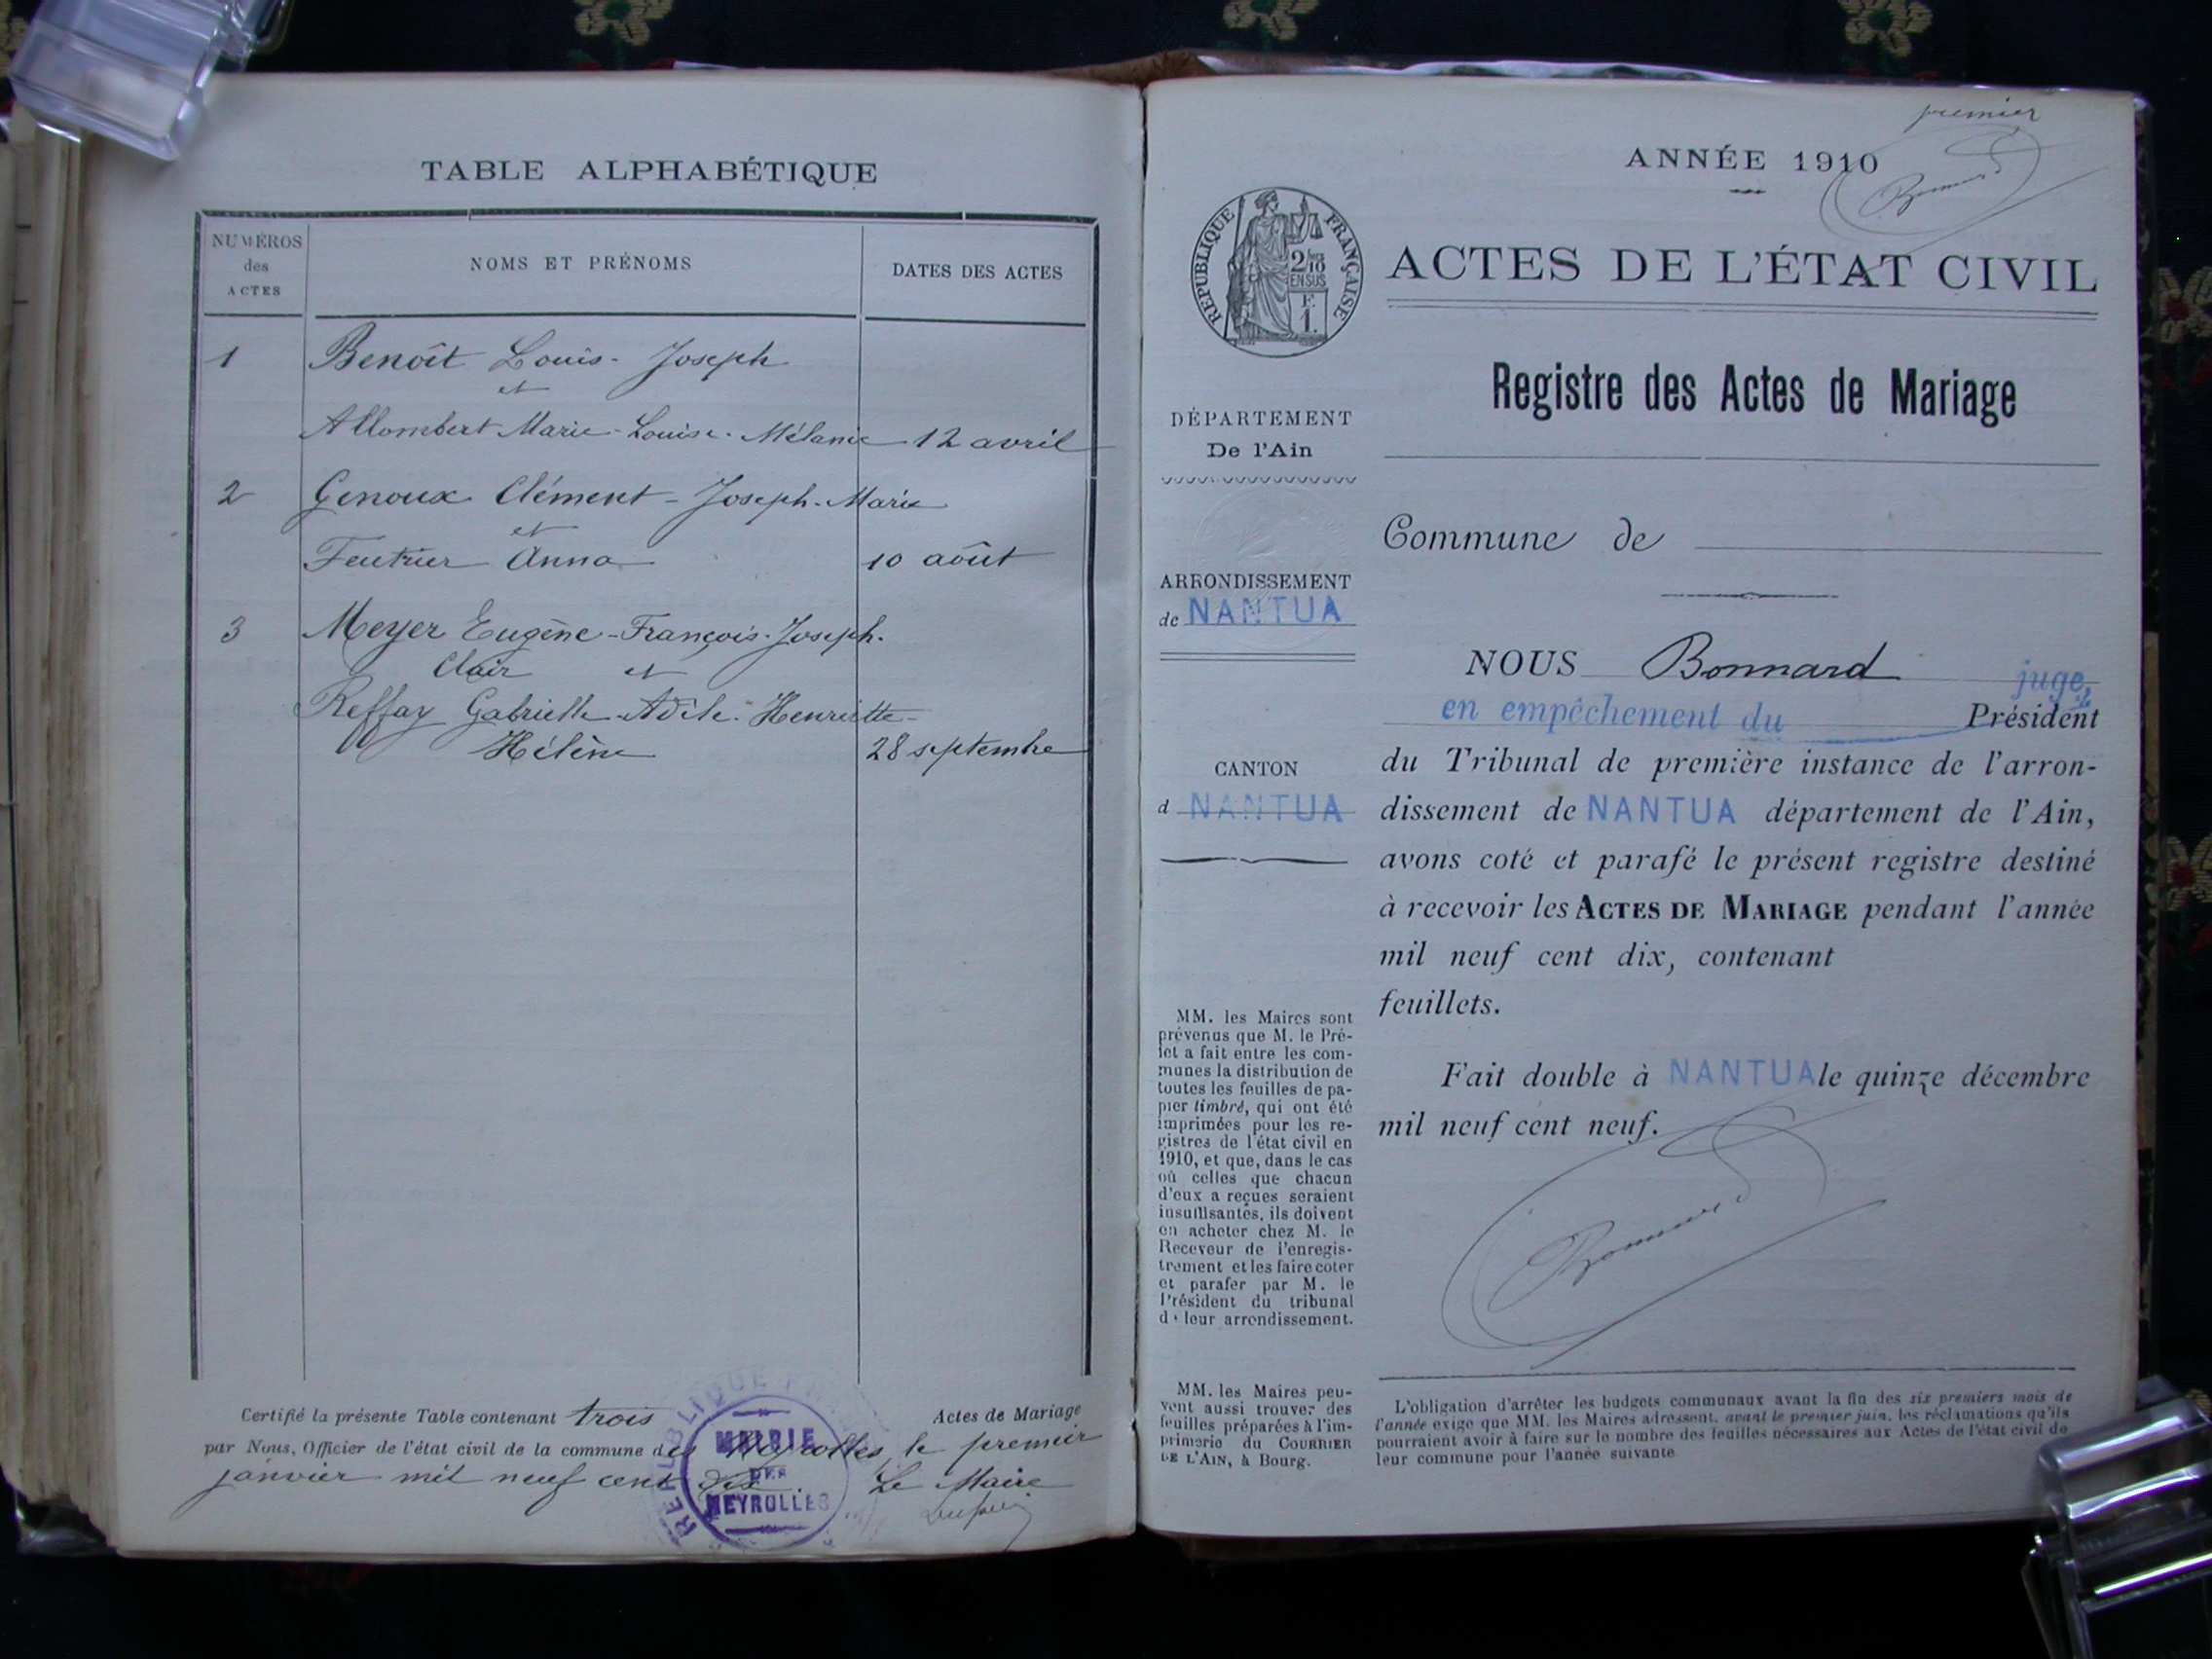 TABLE ALPHABÉTIQUE
NUMÉROS
des
ACTES
NOMS ET PRÉNOMS
DATES DES ACTES
1 Benoît Louis-Joseph
et
Allombert Marie-Louise-Mélanie 12 avril
2 Genoux Clément-Joseph-Marie
et
Feutrier Anna 10 août
3 Meyer Eugène-François-Joseph-
Clair et
Reffay Gabrielle-Adèle-Henriette-
Hélène 28 septembre
Certifié la présente Table contenant trois Actes de Mariage
par Nous, Officier de l'état civil de la commune des Neyrolles, le premier
janvier mil neuf cent dix. Le Maire
MAIRIE
DES
NEYROLLES
premier
ANNÉE 1910
RÉPUBLIQUE FRANÇAISE
2/10
EN SUS
F.
1.
ACTES DE L'ÉTAT CIVIL
Registre des Actes de Mariage
DÉPARTEMENT
De l'Ain
Commune de
ARRONDISSEMENT
de NANTUA
CANTON
d NANTUA
NOUS Bonnard juge,
en empêchement du Président
du Tribunal de première instance de l'arron-
dissement de NANTUA département de l'Ain,
avons coté et parafé le présent registre destiné
à recevoir les ACTES DE MARIAGE pendant l'année
mil neuf cent dix, contenant
feuillets.
Fait double à NANTUA le quinze décembre
mil neuf cent neuf.
Bonnard
MM. les Maires sont
prévenus que M. le Pré-
fet a fait entre les com-
munes la distribution de
toutes les feuilles de pa-
pier timbré, qui ont été
imprimées pour les re-
gistres de l'état civil en
1910, et que, dans le cas
où celles que chacun
d'eux a reçues seraient
insuffisantes, ils doivent
en acheter chez M. le
Receveur de l'enregis-
trement et les faire coter
et parafer par M. le
Président du tribunal
de leur arrondissement.
MM. les Maires peu-
vent aussi trouver des
feuilles préparées à l'im-
primerie du COURRIER
DE L'AIN, à Bourg.
L'obligation d'arrêter les budgets communaux avant la fin des six premiers mois de
l'année exige que MM. les Maires adressent, avant le premier juin, les réclamations qu'ils
pourraient avoir à faire sur le nombre des feuilles nécessaires aux Actes de l'état civil de
leur commune pour l'année suivante